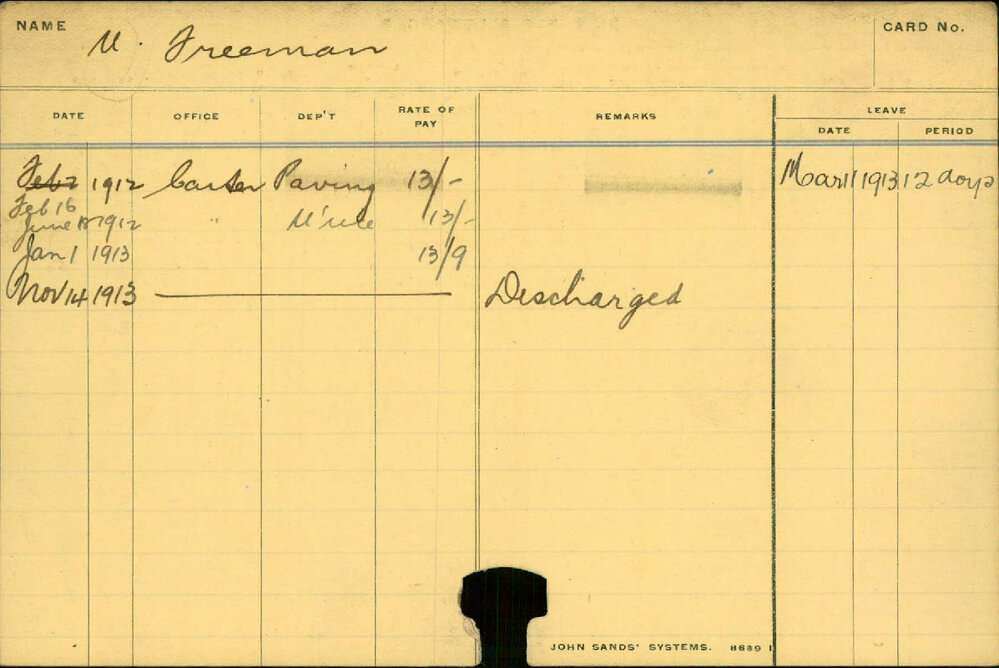 NAME U. Freeman CARD No.
DATE OFFICE DEP'T RATE OF PAY REMARKS LEAVE
DATE PERIOD
Feb 2 1912 Carter Paving 13/- Mar 11 1913 12 days
Feb 16
June 1912 " 13/-
Jan 1 1913 13/9
Nov 14 1913 Discharged
JOHN SANDS' SYSTEMS. 8689